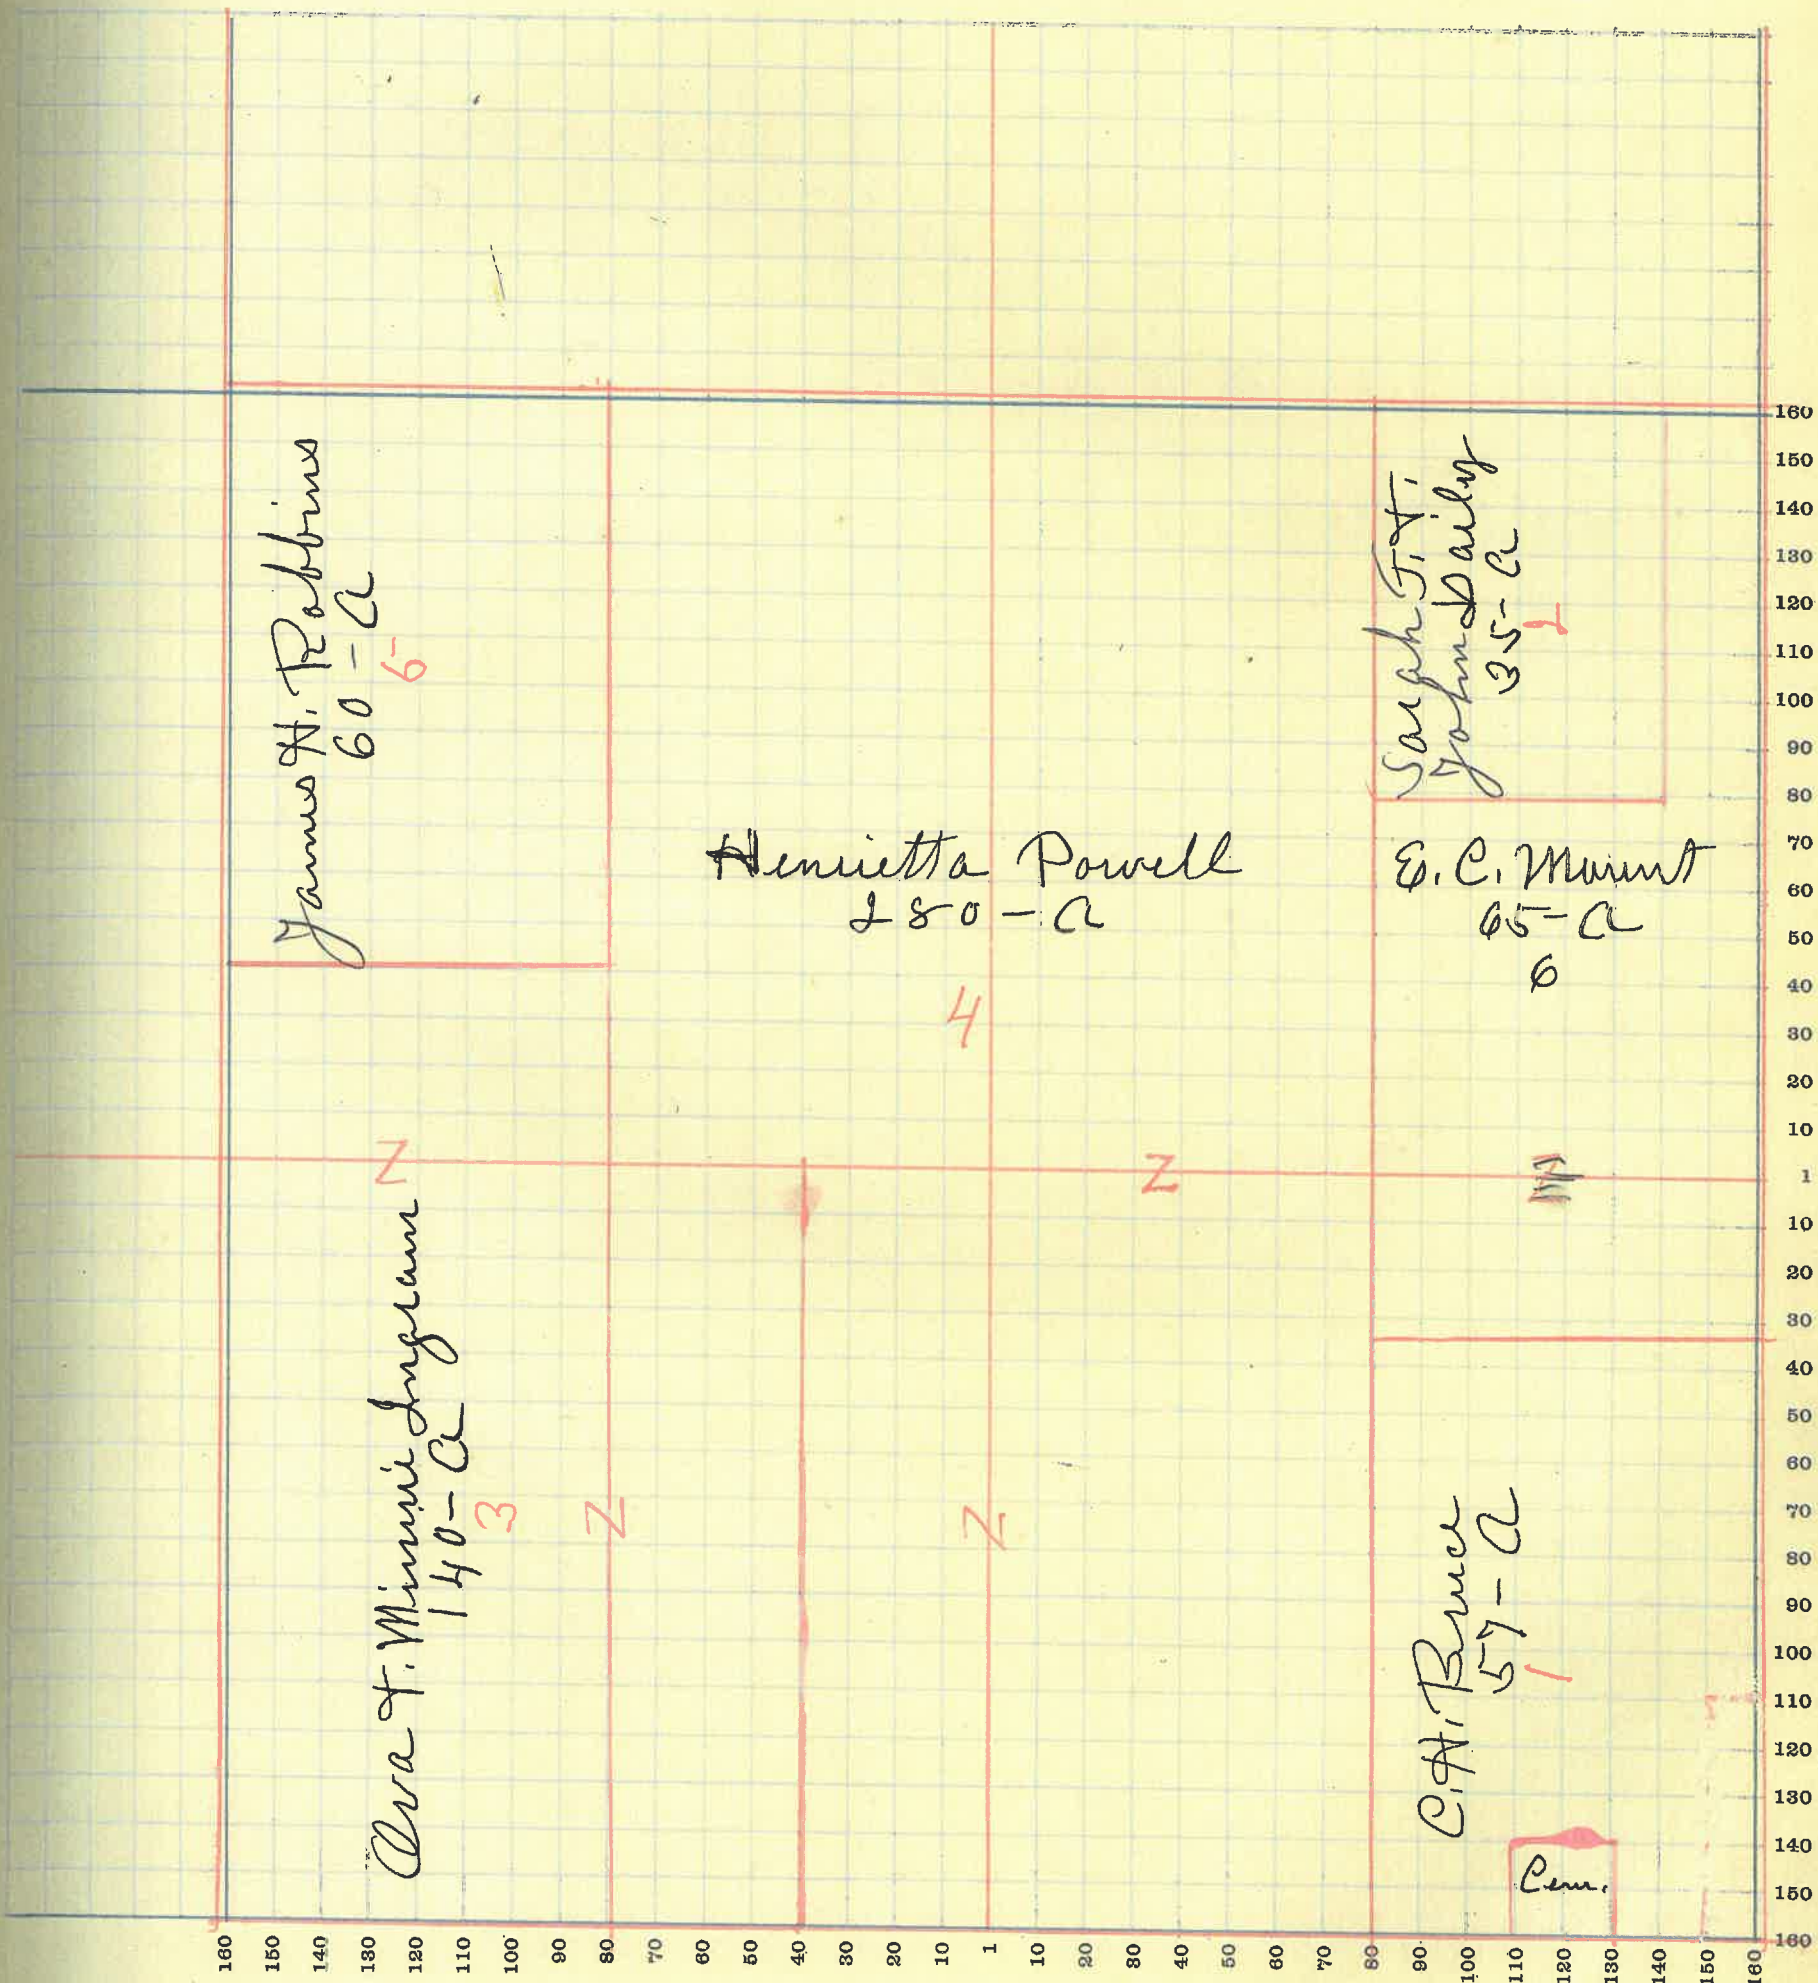 James H. Robbins
60-A
6
Sarah J. &
John Daily
35-A
1
Henrietta Powell
280-A
4
E. C. Mount
65-A
6
Z
Z
Ova & Minnie Ingram
140-A
3
Z
Z
C. H. Bruce
57-A
1
Cem.
160
150
140
130
120
110
100
90
80
70
60
50
40
30
20
10
1
10
20
30
40
50
60
70
80
90
100
110
120
130
140
150
160
160
150
140
130
120
110
100
90
80
70
60
50
40
30
20
10
1
10
20
30
40
50
60
70
80
90
100
110
120
130
140
150
160